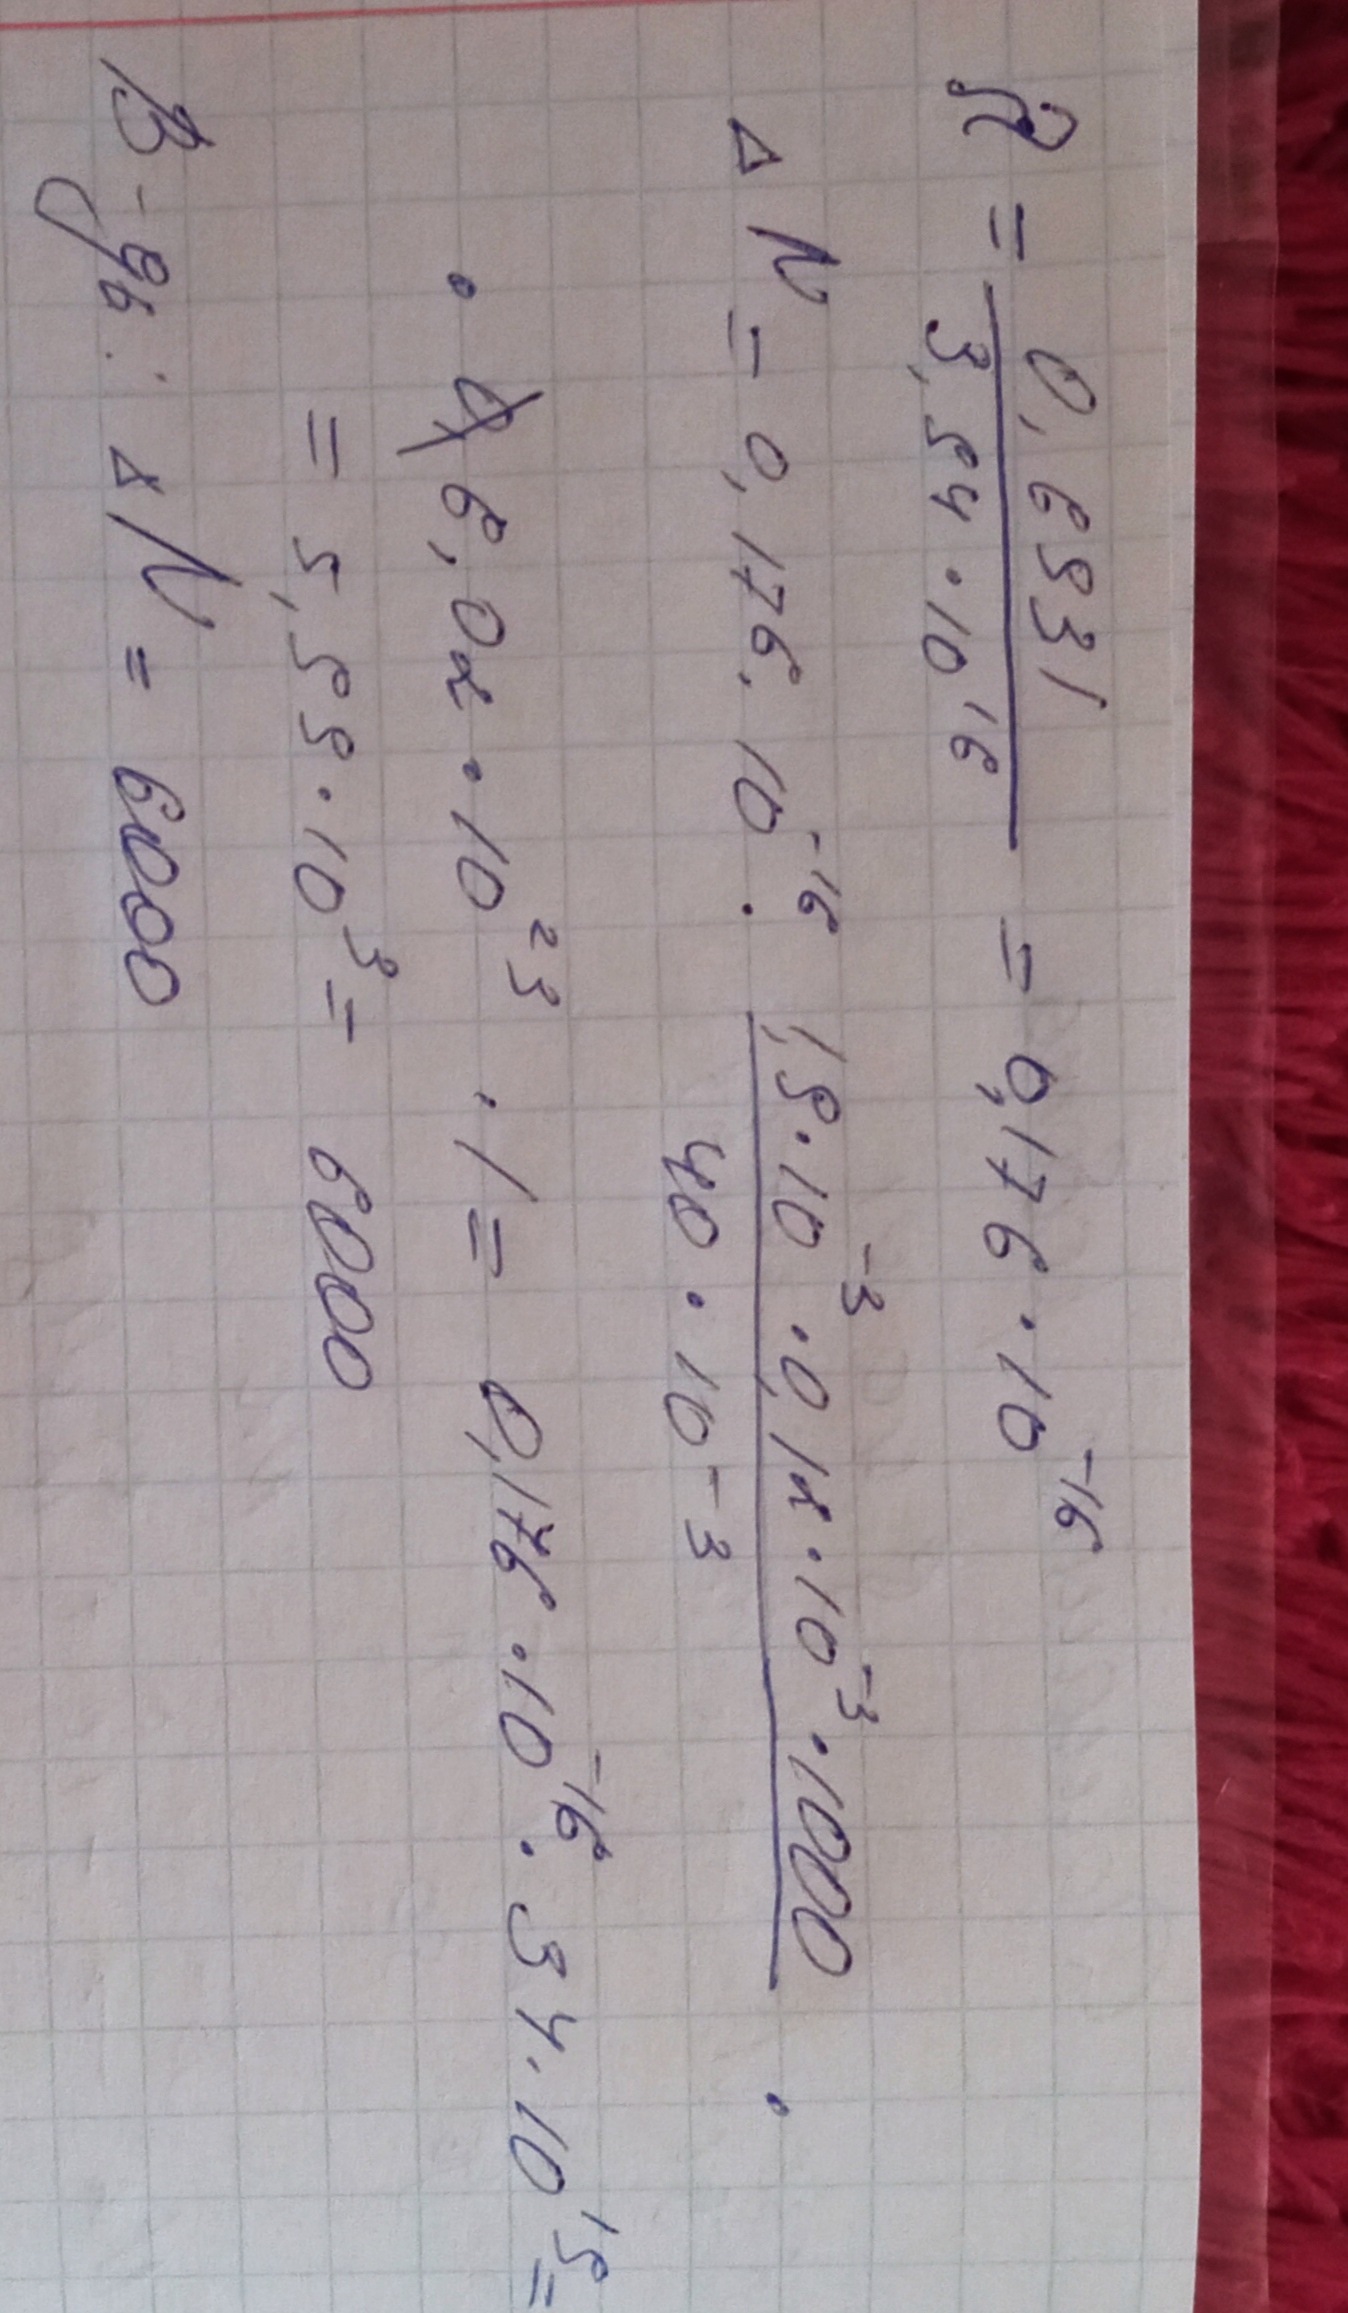 λ = 0,6931 / 3,94·10¹⁶ = 0,176·10⁻¹⁶
ΔN = 0,176·10⁻¹⁶· 1,9·10⁻³·0,12·10⁻³·1000 / 40·10⁻³ ·
· 6,02·10²³·1 = 0,176·10⁻¹⁶·34·10¹⁹=
= 5,99·10³= 6000
В-дь: ΔN = 6000